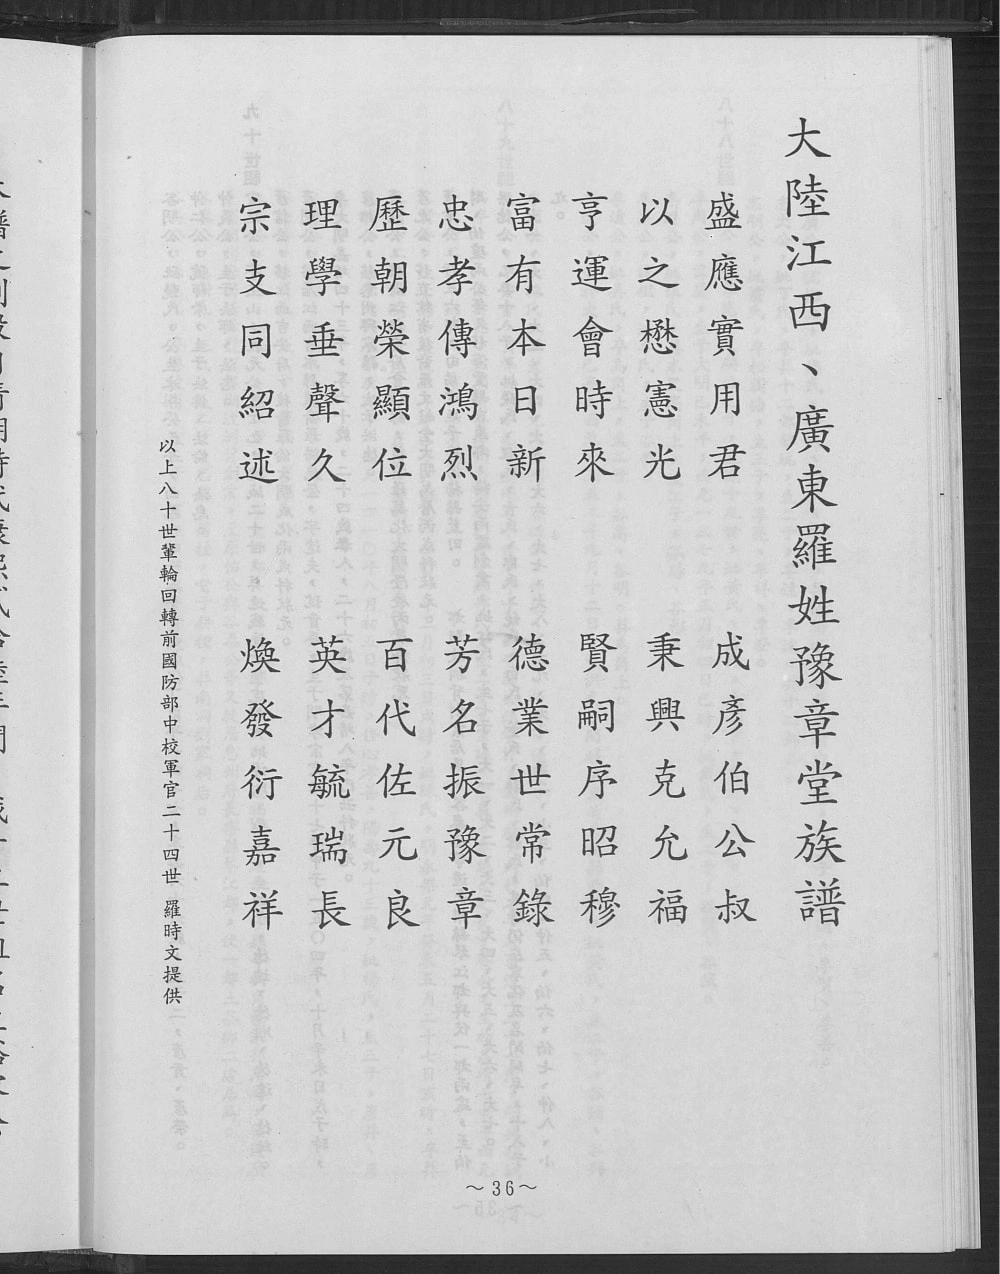 大陸江西、廣東羅姓豫章堂族譜
盛應實用君　成彥伯公叔
以之懋憲光　秉興克允福
亨運會時來　賢嗣序昭穆
富有本日新　德業世常錄
忠孝傳鴻烈　芳名振豫章
歷朝榮顯位　百代佐元良
理學垂聲久　英才毓瑞長
宗支同紹述　煥發衍嘉祥
以上八十世輩輪回轉前國防部中校軍官二十四世 羅時文提供
～36～